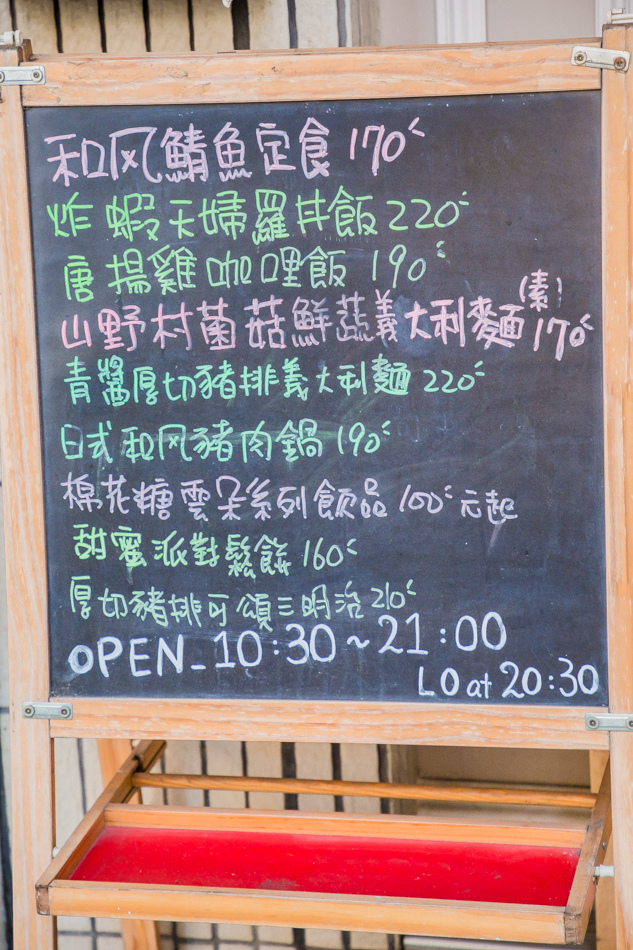 和风鯖魚定食 170
炸蝦天婦羅丼飯 220
唐揚雞咖哩飯 190
山野村菌菇鮮蔬義大利麵(素) 170
青醬厚切豬排義大利麵 220
日式和风豬肉鍋 190
棉花糖雲朵系列飲品 100元起
甜蜜派對鬆餅 160
厚切豬排可頌三明治 210
OPEN_10:30~21:00
LO at 20:30